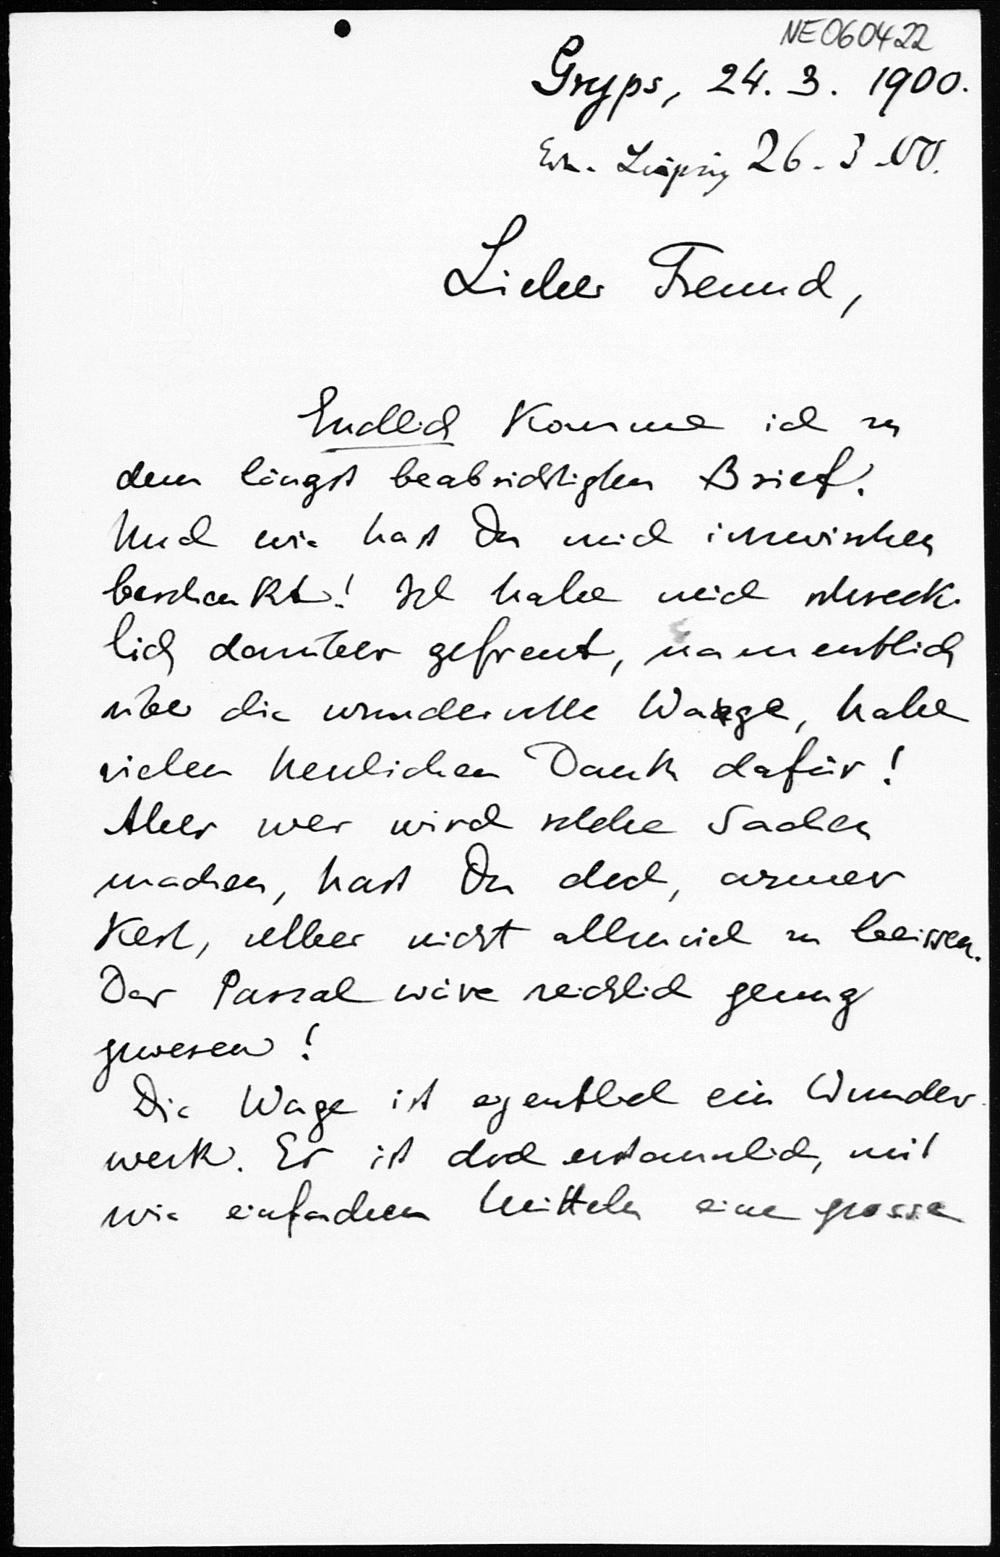 NE060422
Gryps, 24. 3. 1900.
Erh. Leipzig 26. 3. 00.
Lieber Freund,
Endlich komme ich zu
dem längst beabsichtigten Brief.
Und wie hast Du mich inzwischen
beschenkt! Ich habe mich schreck-
lich darüber gefreut, namentlich
über die wundervolle Waage, habe
vielen herzlichen Dank dafür!
Aber wer wird solche Sachen
machen, hast Du doch, armer
Kerl, selber nicht allzuviel zu beissen.
Der Pascal wäre reichlich genug
gewesen!
Die Wage ist eigentlich ein Wunder-
werk. Es ist doch erstaunlich, mit
wie einfachen Mitteln eine grosse